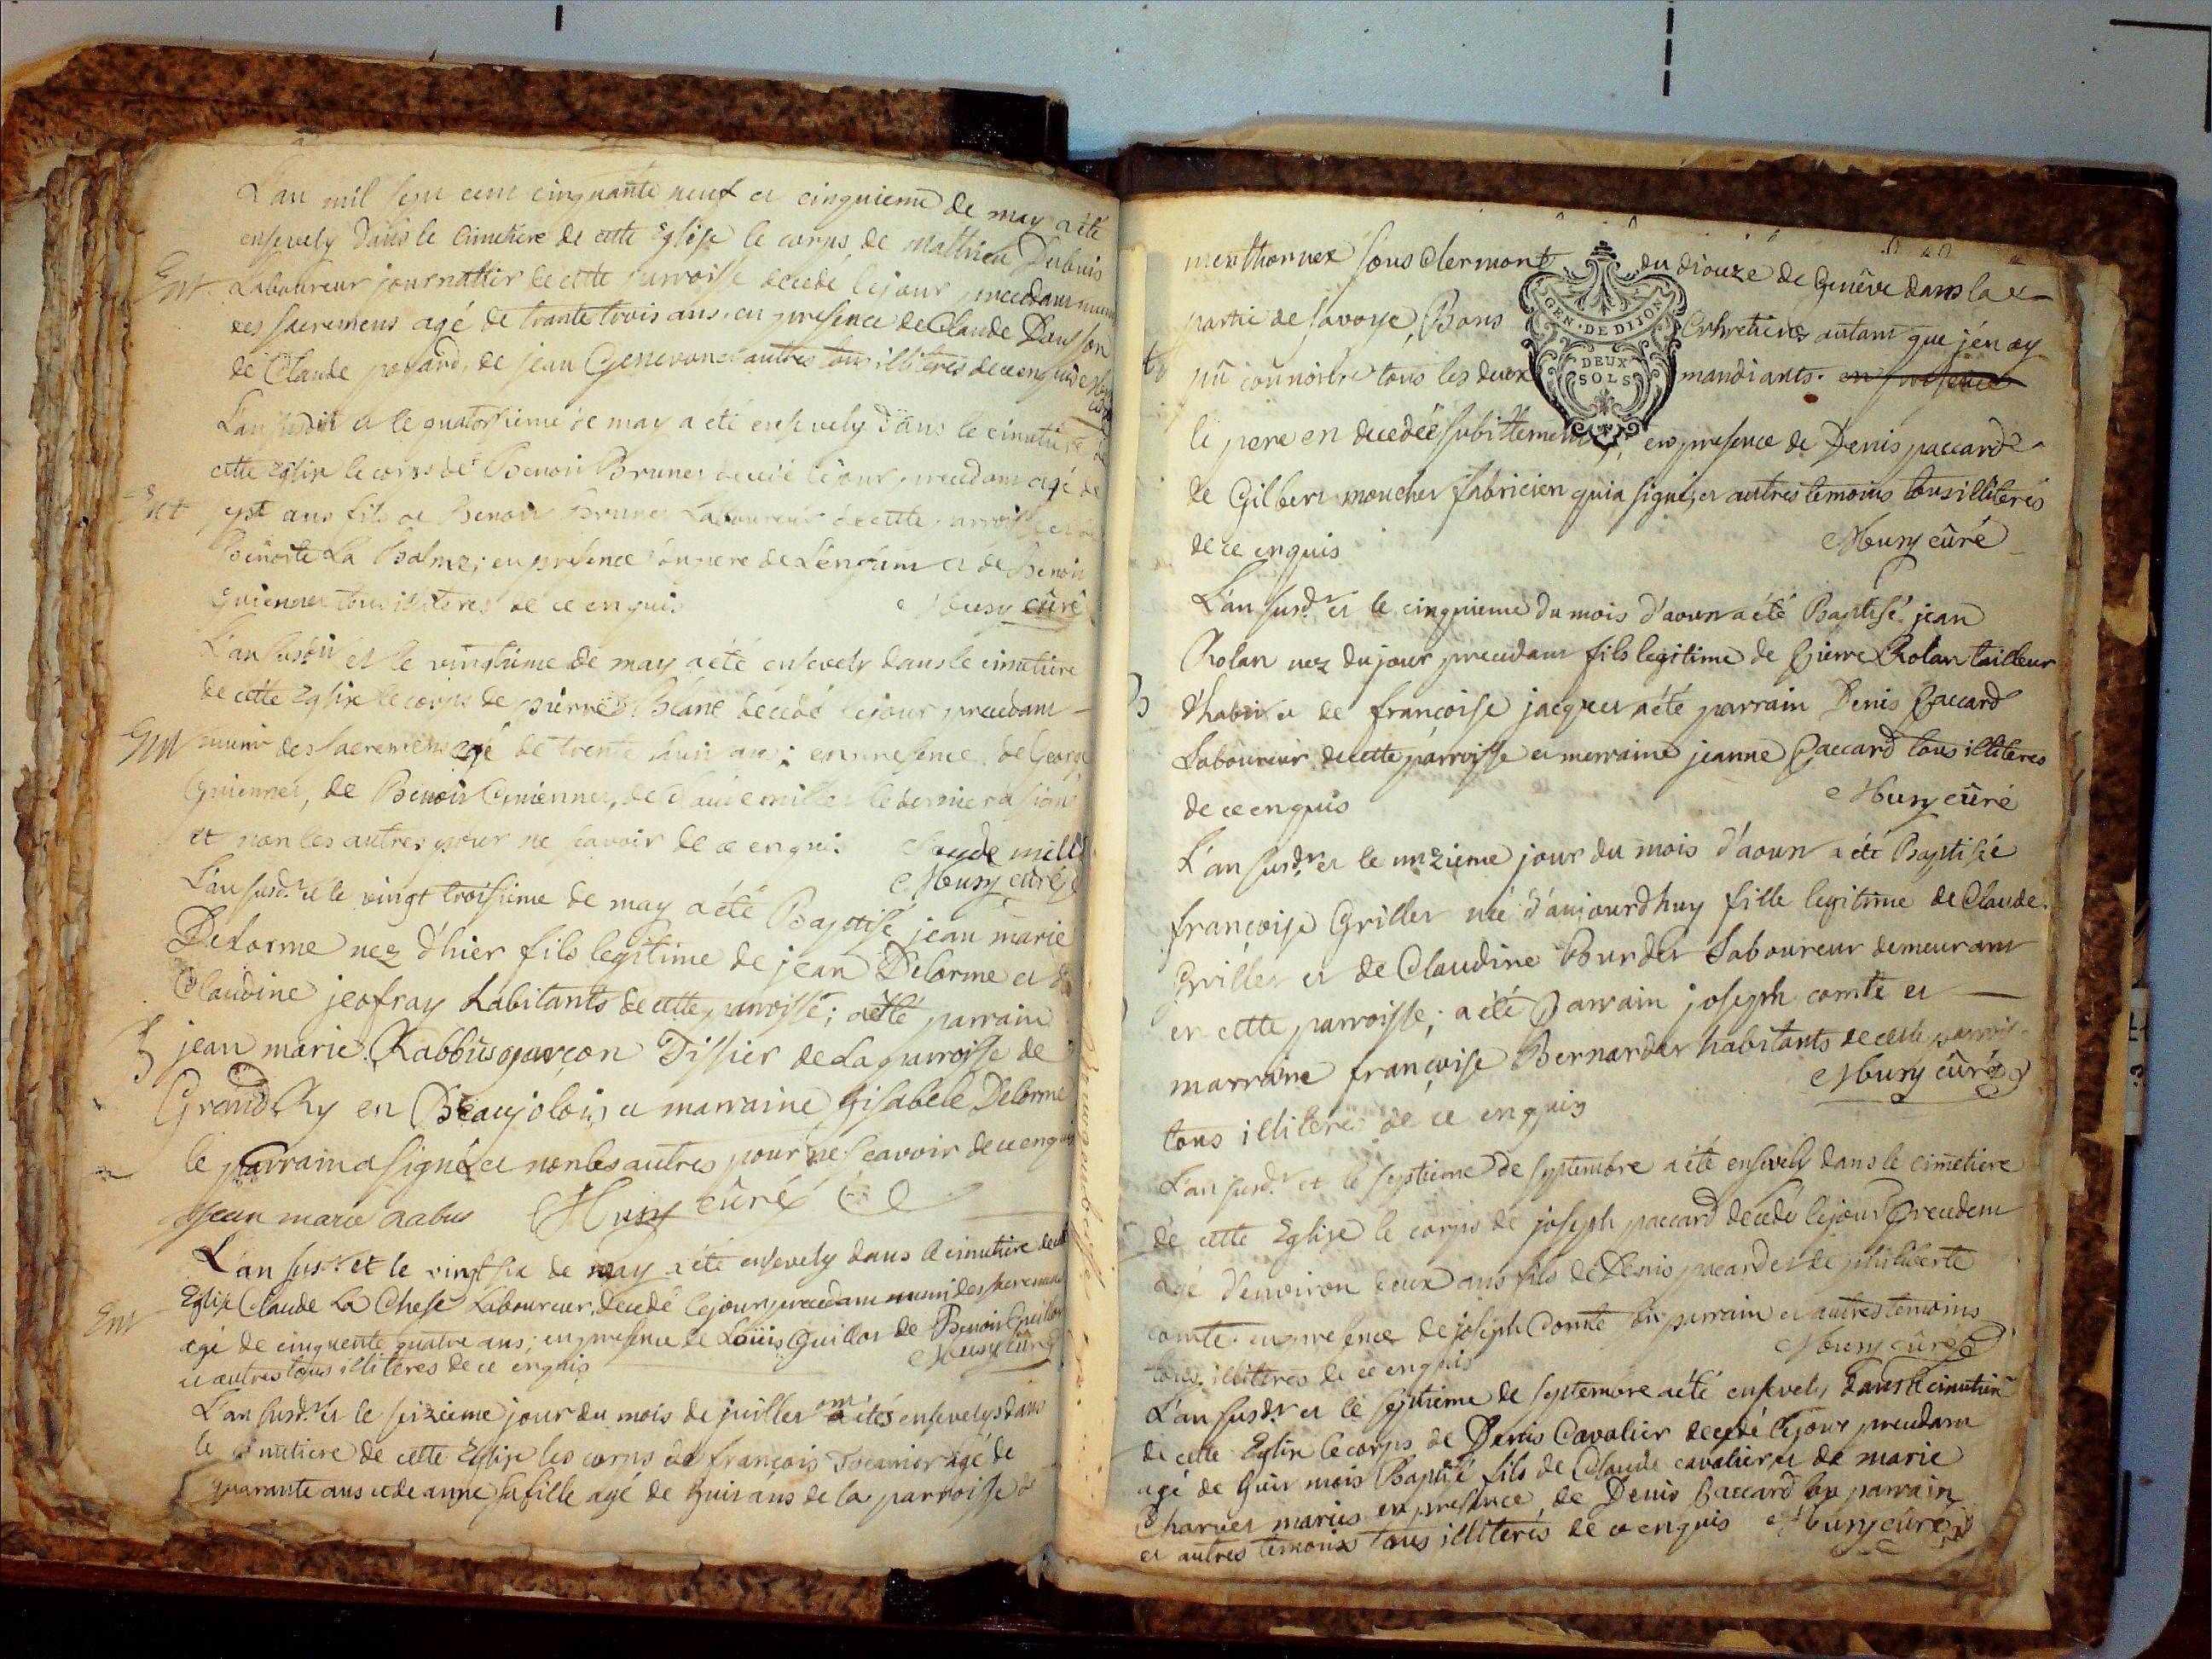 L'an mil sept cent cinquante neuf et cinquieme de may a été
ensevely dans le cimetiere de cette Eglise le corps de mathieu Dubuis
Ent Laboureur journallier de cette parroisse decedé le jour precedant muni
des sacremens agé de trante trois ans, en presence de Claude Dausson
de Claude ponard, de jean Genevone autres tous illiteres de ce enquis
L'an susdit et le quatorsieme de may a été ensevely dans le cimetiere de
cette Eglise le corps de Benoit Brunet decedé le jour precedant agé de
Ent sept ans fils de Benoit Brunet Laboureur de cette parroisse et de
Benoite La Balme; en presence du pere de L'enfant et de Benoit
Guiennet tous illiteres de ce enquis Musy cûré
L'an susdit et le vingtieme de may a été ensevely dans le cimetiere
de cette Eglise le corps de pierre Blanc decedé le jour precedant
Ent muni des sacremens agé de trente huit ans; en presence de George
Guiennet, de Benoit Guiennet, de Claude millet le dernier a signé
et non les autres pour ne scavoir de ce enquis Claude mill
Musy cûré
L'an susd.t et le vingt troisieme de may a été Baptisé jean marie
Delorme nez d'hier fils legitime de jean Delorme et de
Claudine jeofray habitants de cette parroisse; a été parrain
B jean marie Rabbus garçon Tissier de La parroisse de
Grand Ry en Beaujolois et marraine Gisabele Delorme
le parrain a signé et non les autres pour ne scavoir de ce enquis
jean marie rabus Musy cûré
L'an sus.t et le vingt six de may a été ensevely dans le cimetiere de cette
Eglise Claude La Chese Laboureur, decedé le jour precedant muni des sacremens
Ent agé de cinquente quatre ans; en presence de Loüis Guillot de Benoit Guillot
et autres tous illiteres de ce enquis Musy cûré
L'an susd.t et le seizieme jour du mois de juillet ont étés ensevelys dans
le cimetiere de cette Eglise les corps de françois Tocanier agé de
quarante ans et de anne sa fille agé de huit ans de la parroisse de
menthonnex sous Clermont du diouze de Genêve dans la
partie de savoye, Bons Crhretiens autant que j'en ay
pû connoitre tous les deux mandiants. en presence
le pere en decedé subittement, en presence de Denis paccard
de Gilbert mouchet fabricien qui a signé, et autres temoins tous illiterés
de ce enquis Musy cûré
L'an susd.t et le cinquieme du mois d'aoust a été Baptisé jean
Rolan nez du jour precedant fils legitime de pierre Rolan tailleur
B d'habit et de francoise jacquet a été parrain Denis paccard
Laboureur de cette parroisse et merraine jeanne paccard tous illiteres
de ce enquis Musy cûré
L'an susd.t et le unzieme jour du mois d'aoust a été Baptisée
françoise Grillet née d'aujourdhuy fille legitime de Claude
Grillet et de Claudine Bourdet Laboureur demeurant
en cette parroisse; a été parrain joseph comte et
marraine françoise Bernardet habitants de cette parrois
tous illiteres de ce enquis Musy cûré
L'an susd.t et le septieme de septembre a été ensevely dans le cimetiere
de cette Eglise le corps de joseph paccard decedé le jour precedent
agé d'environ deux ans fils de Denis paccard et de philiberte
comte. en presence de joseph Comte son parrain et autres temoins
tous illiteres de ce enquis Musy cûré
L'an susd.t et le septieme de septembre a été ensevely dans le cimetiere
de cette Eglise le corps de Denis Cavalier decedé le jour precedant
agé de huit mois Baptisé fils de Claude cavalier et de marie
Charvet mariés en presence, de Denis paccard son parrain
et autres temoins tous illiterés de ce enquis Musy cûré
GEN · DE DIJON
DEUX
SOLS